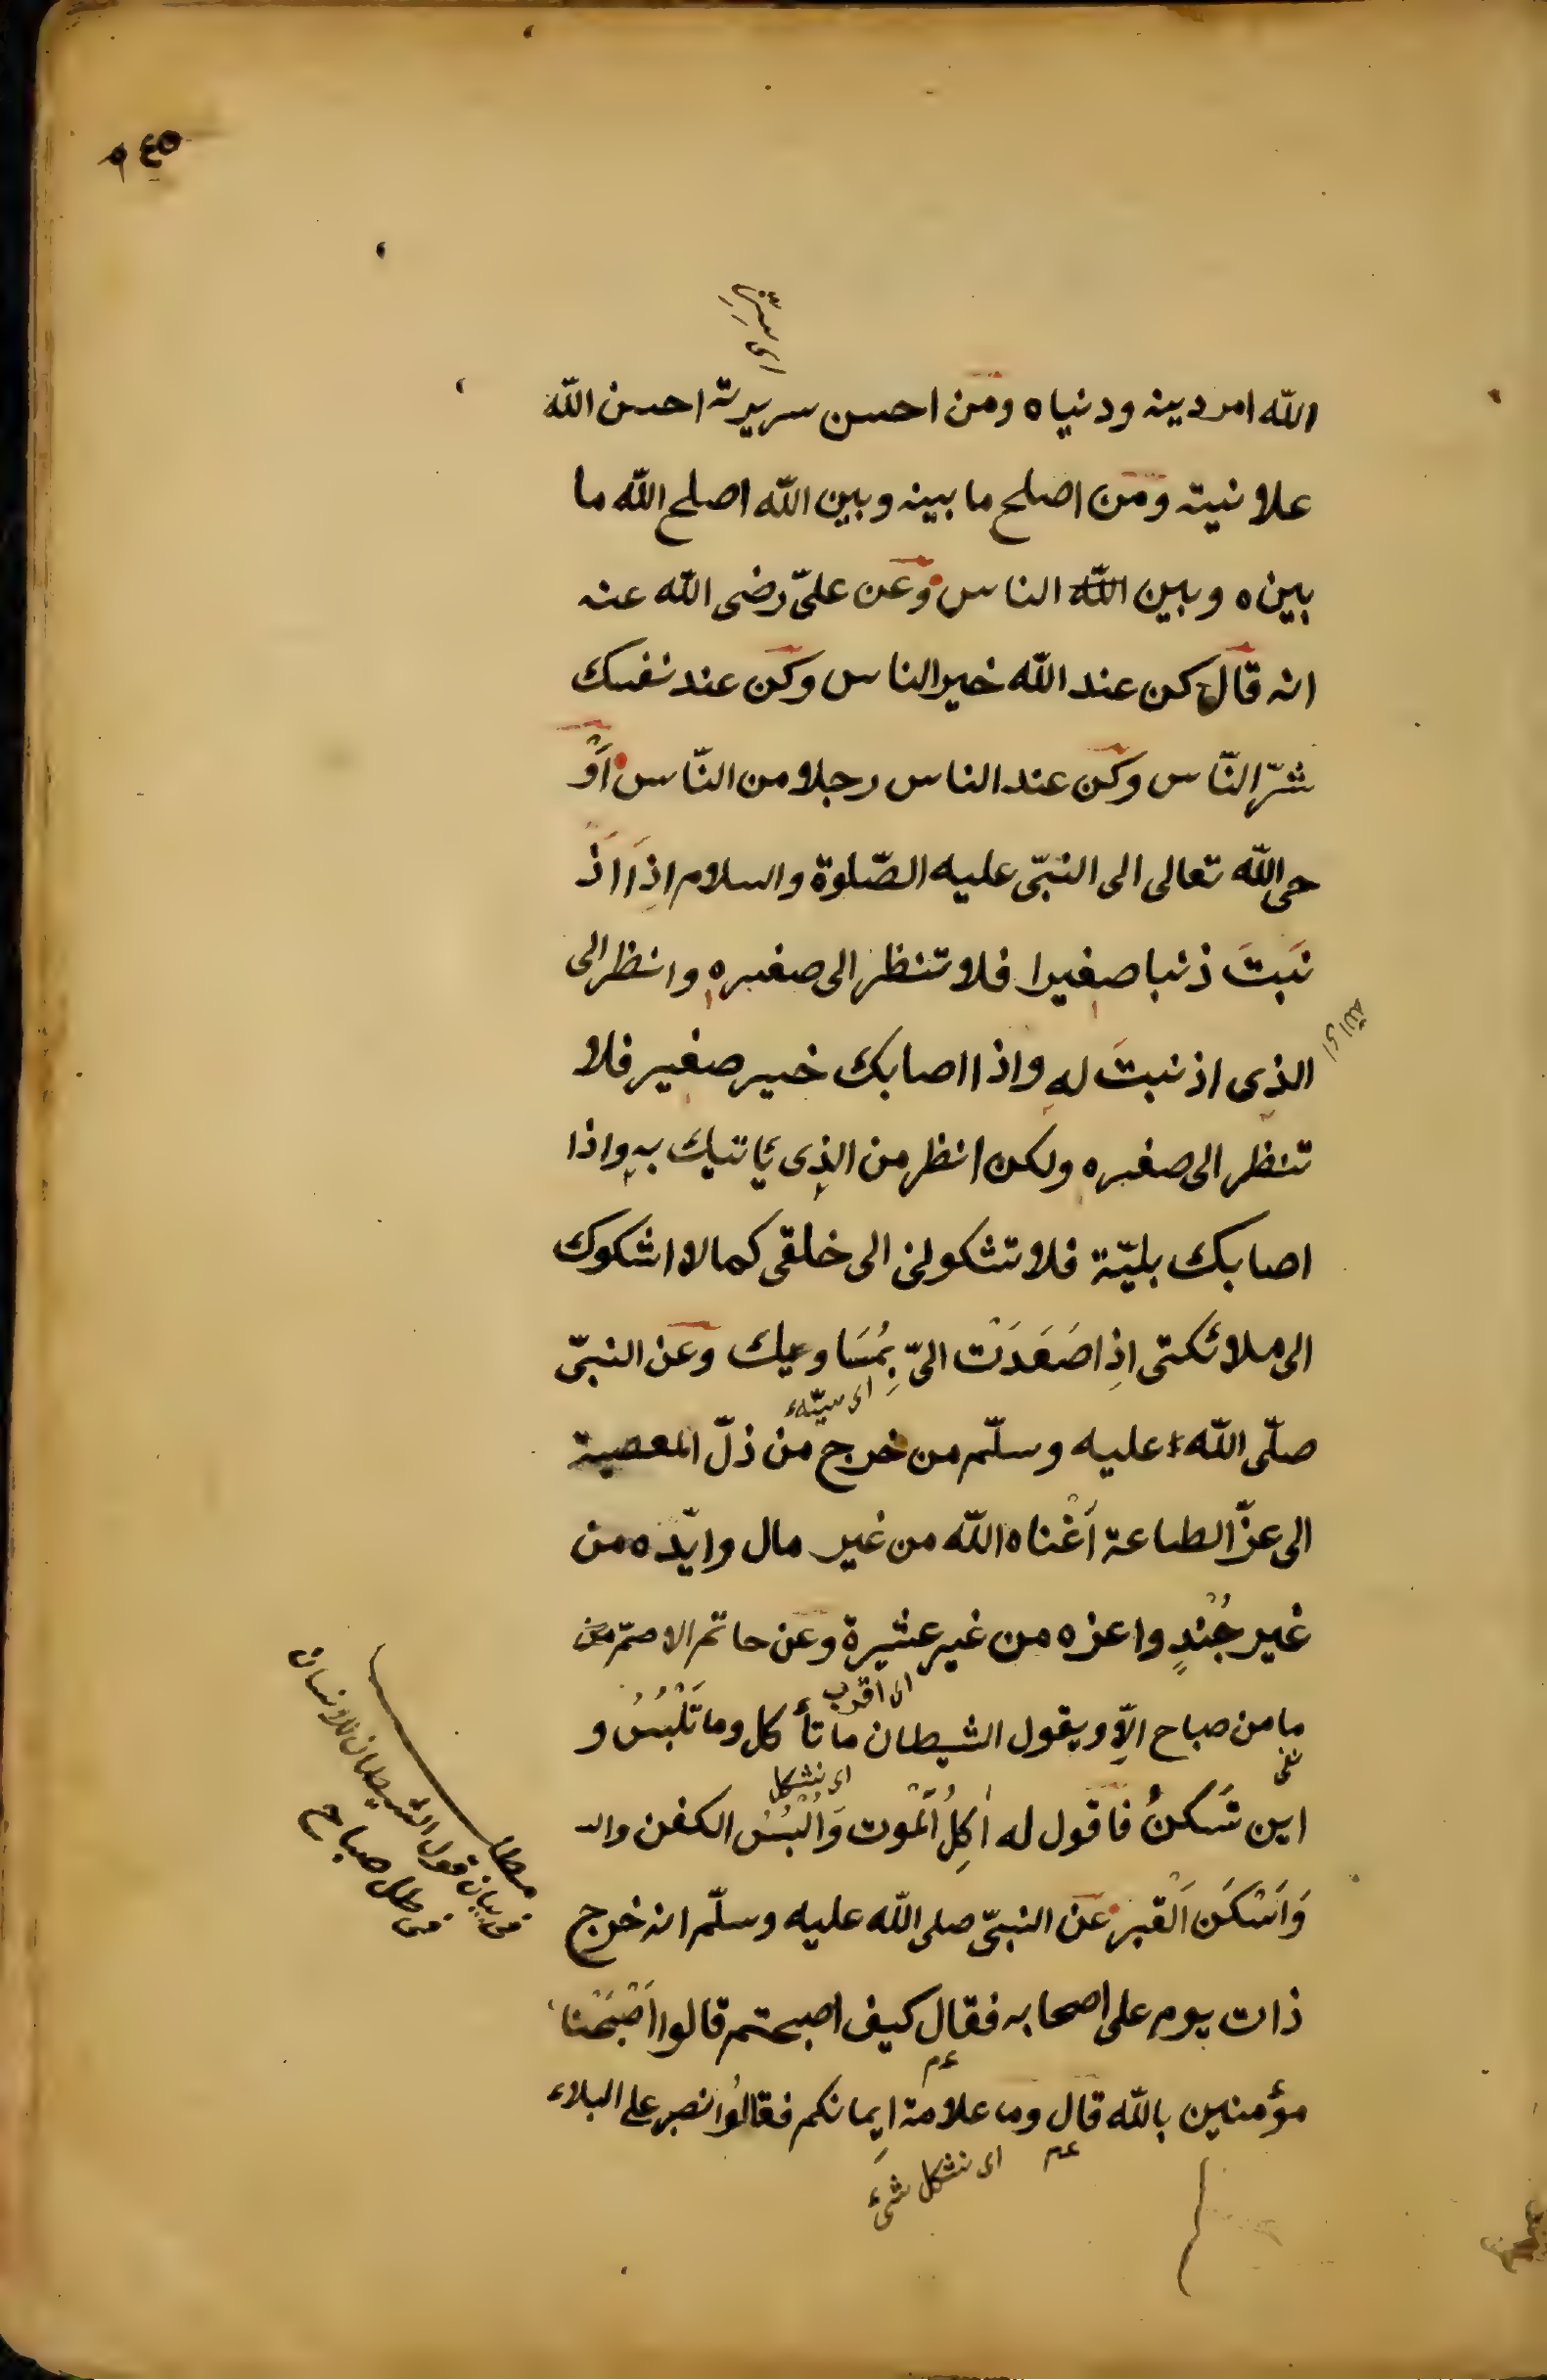 الله امر دينه ودنياه ومن احسن سريرته احسن الله
علانيته ومن اصلح ما بينه وبين الله اصلح الله ما
بينه وبين الله الناس وعن علىّ رضى الله عنه
انه قال كن عند الله خير الناس وكن عند نفسك
شرّ النّاس وكن عند الناس رجلا من النّاس اَوْ
حى الله تعالى الى النبىّ عليه الصّلوة والسلام اِذَا اَذْ
نَبتَ ذنبا صغيرا فلا تنظر الى صغيره وانظر الى
الذى اذنبتَ لهِ واذا اصابك خير صغير فلا
تنظر الى صغيره ولكن انظر من الذِى يأتيك بهِ واذا
اصابك بليّة فلا تشكونى الى خلقى كما لا اشكوك
الى ملائكتى اِذا صَعَدَتْ الىّ بِمُسَاوِيك وعن النبىّ
اى سيّئة
صلّى الله عليه وسلّم من خرج من ذلّ المعصية
الى عزّ الطاعة اَغْناه الله من غير مال وايّده من
غير جُنْدٍ واعزه من غير عشيرة وعن حاتم الاصمّ
ما من صباح الاّ ويقول الشيطان ما تأكل وما تَلْبُسُ و
اين تَسْكنُ فاقول له اٰكِلُ اَلْموت وَاَلْبُسُ الكفن
وَاَسْكَن اَلْقبر عَن النبىّ صلى الله عليه وسلّم انه خرج
ذات يوم على اصحابه فقال كيف اصبحتم قالوا اَصْبَحْنا
مؤمنين بالله قال وما علامة اِيمانكم فقالُوا نصبر على البلاء
اى الله
فى بيان قول الشيطان للانسان
فى كل صباح